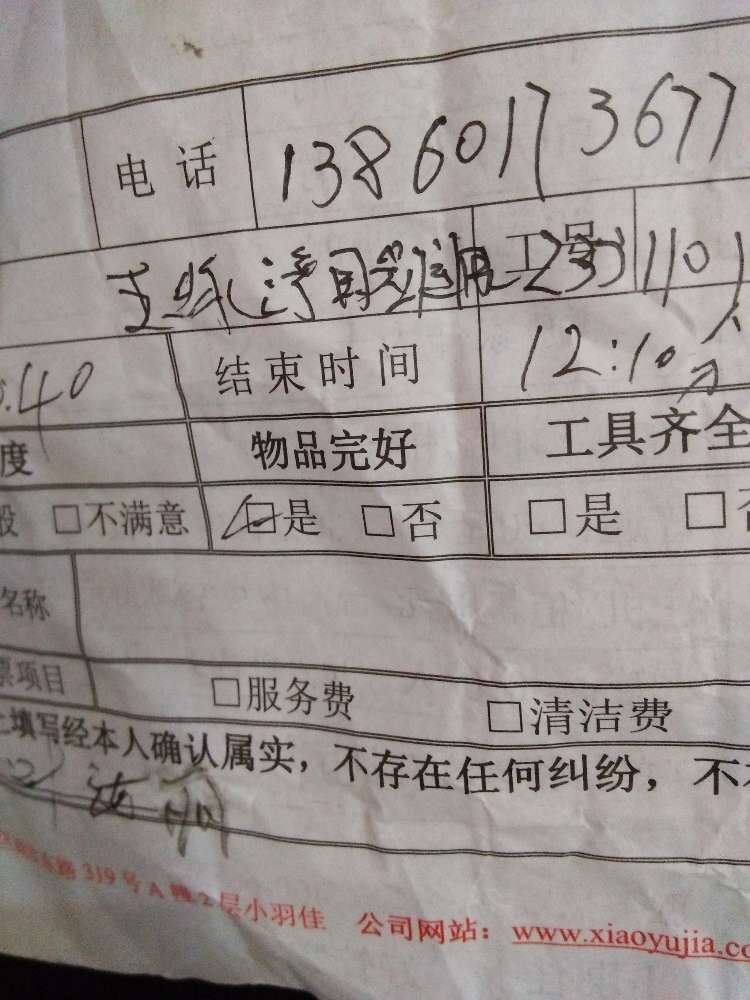 电话 13860173677
工号 1101
.40 结束时间 12:10分
度 物品完好 工具齐全
般 □不满意 □是 □否 □是 □否
名称
票项目 □服务费 □清洁费
上填写经本人确认属实，不存在任何纠纷，不
路319号A幢2层小羽佳 公司网站：www.xiaoyujia.co